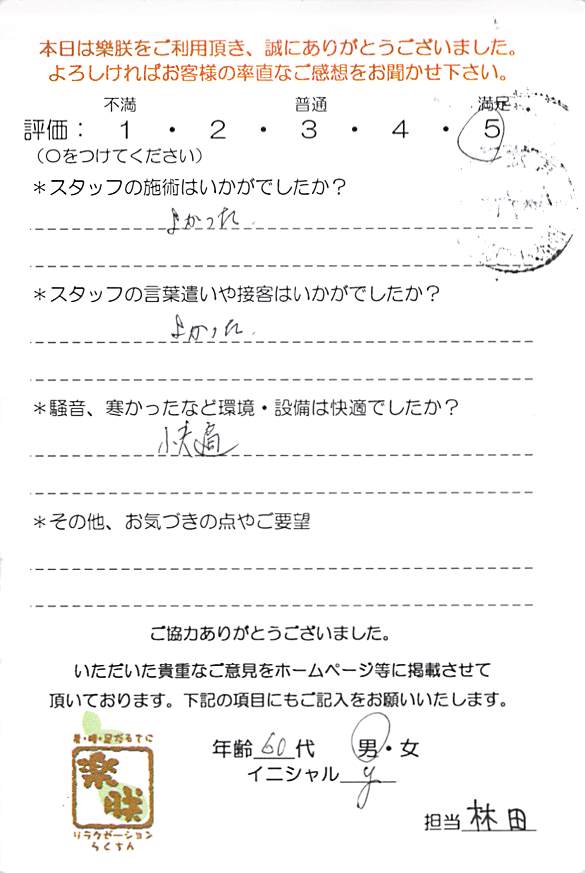 本日は樂朕をご利用頂き、誠にありがとうございました。
よろしければお客様の率直なご感想をお聞かせ下さい。
不満 普通 満足
評価： 1 ・ 2 ・ 3 ・ 4 ・ 5
（〇をつけてください）
＊スタッフの施術はいかがでしたか？
よかった.
＊スタッフの言葉遣いや接客はいかがでしたか？
よかった.
＊騒音、寒かったなど環境・設備は快適でしたか？
快適
＊その他、お気づきの点やご要望
ご協力ありがとうございました。
いただいた貴重なご意見をホームページ等に掲載させて
頂いております。下記の項目にもご記入をお願いいたします。
年齢 60 代 男・女
イニシャル y
担当 林田
楽朕
リラクゼーション
らくちん